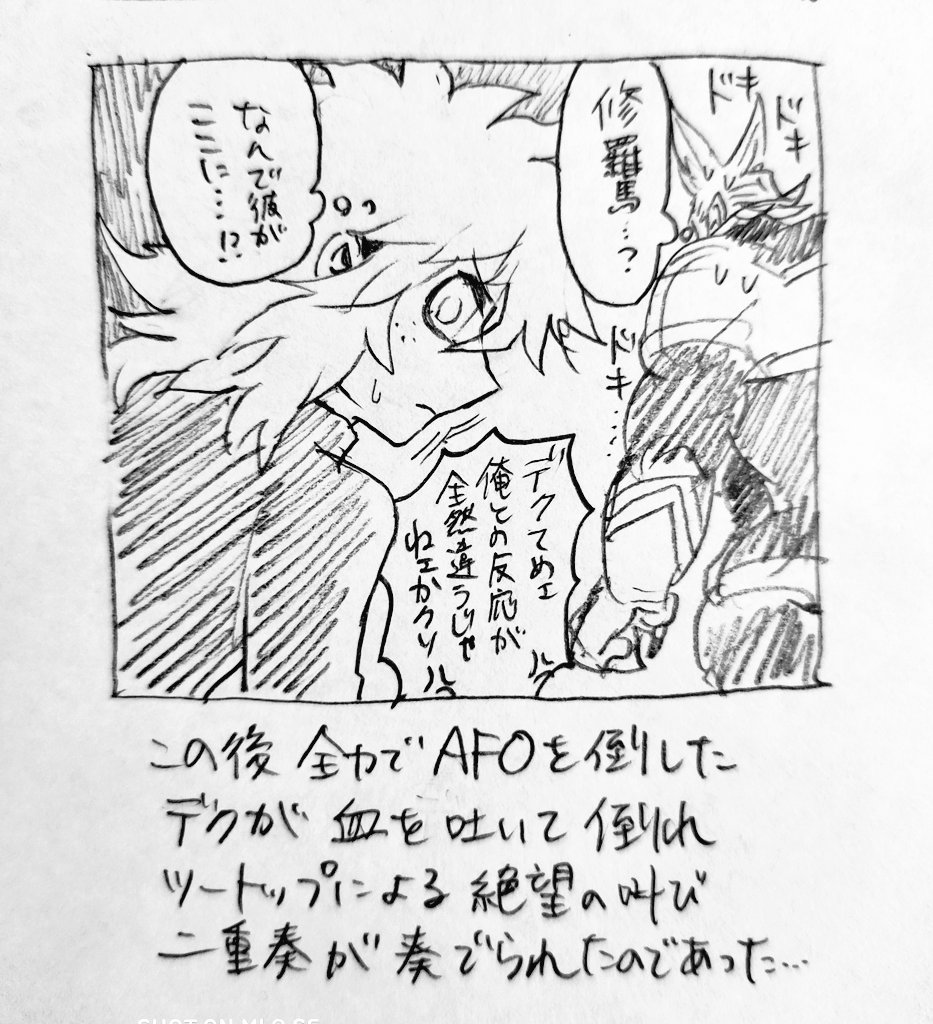 ドキ
ドキ
修羅馬…?
なんで彼が
ここに…!?
ドキ…
デクてめェ
俺との反応が
全然違うじゃ
ねェかクソ
ルァ
ルァ
この後 全力で AFOを倒した
デクが 血を 吐いて 倒れ
ツートップによる 絶望の叫び
二重奏が 奏でられたのであった…